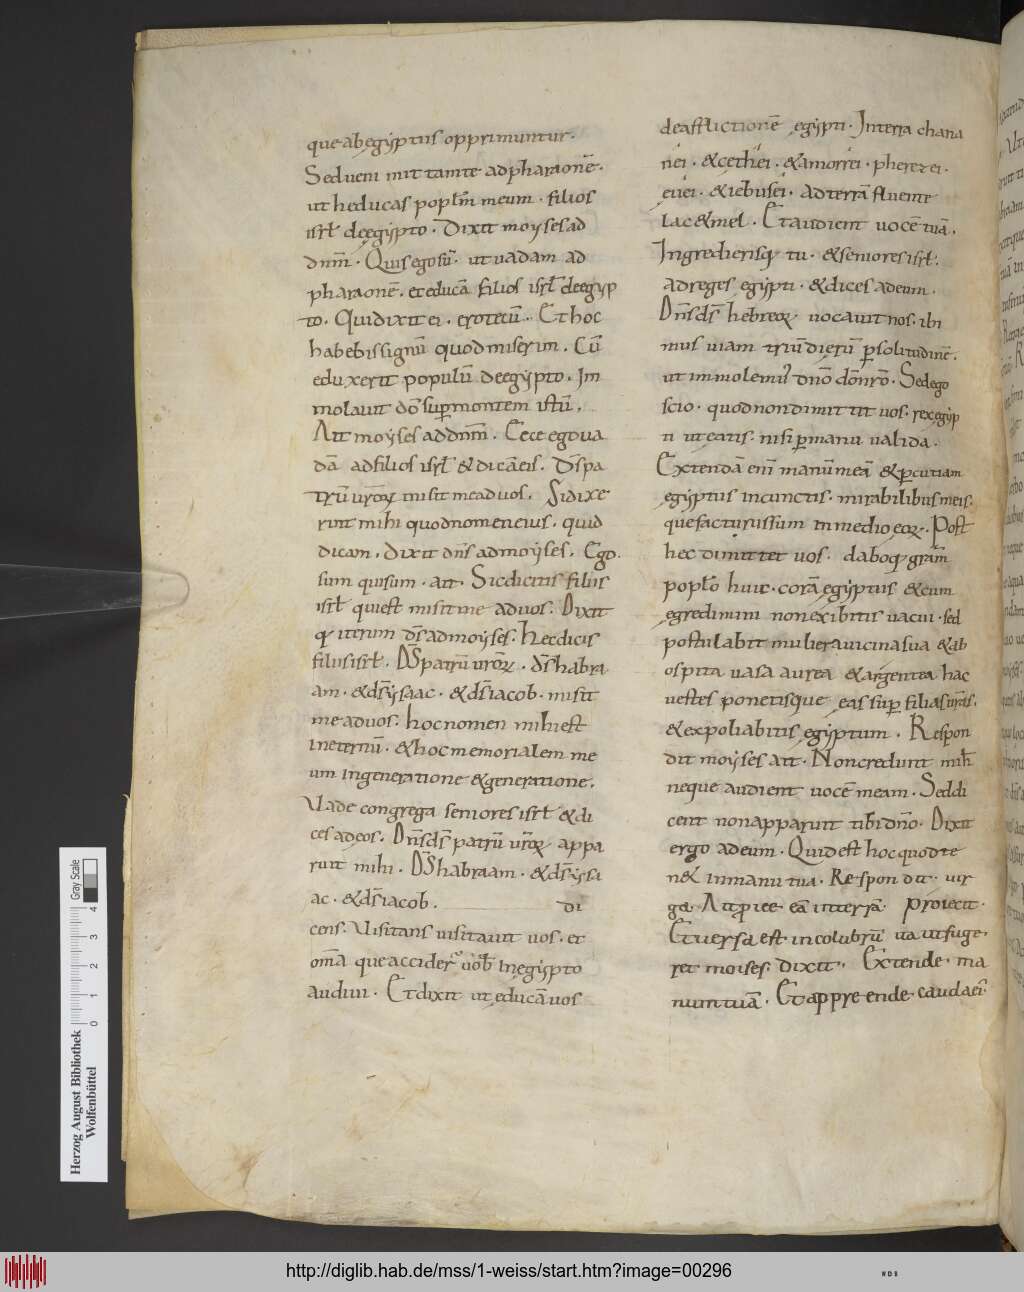 que abegyptiis opprimuntur.
Sed veni mittamte adpharaonē.
ut heducas popłm meum. filios
isrł deęgypto. Dixit moysesad
dnm̄. Quisegosū. ut vadam ad
pharaonē. et educā filios isrł deęgyp
to. Qui dixit ei. erotecū. Et hoc
habebis signū quod miserim. Cū
eduxerit populū deęgypto. Im
molavit dō suꝑmontem istū.
Ait moyses addnm̄. Ecce ego va
dā adfilios isrł & dicāeis. Ds̄ pa
trū vr̄oꝝ misit meadvos. Si dixe
rint mihi quod nomen eius. quid
dicam. dixit dn̄s ad moyses. Ego
sum qui sum. ait. Sic dicitis filiis
isrł qui est misit me advos. Dixit
qꝫ iterum ds̄ ad moyses. Hec dicis
filiis isrł. Ds̄ patrū vr̄oꝝ. ds̄ habra
am. & ds̄ ysaac. & ds̄ iacob. misit
me ad vos. hoc nomen mihi est
in eternū. & hoc memorialem me
um in generatione & generatione.
Vade congrega seniores isrł & di
ces adeos. Dn̄s ds̄ patrū vr̄oꝝ appa
ruit mihi. Ds̄ habraam. & ds̄ ysa
ac. & ds̄ iacob. di
cens. Visitans visitavit vos. et
om̄a que acciderꝰ vob̄ in egypto
audivi. Et dixit ut educā vos
de afflictionē egypti. In terra chana
nei. & cethei. & amorrei. pherezei.
evei. & iebusei. Ad terrā fluente
lac & mel. Et audient vocē tuā.
Ingredierisqꝫ tu. & seniores isrł.
ad reges egypti. & dices adeum.
Dn̄s ds̄ hebreoꝝ vocavit nos. ibi
mus viam triū dierū ꝑ solitudinē.
ut immolemꝰ dnō dō nr̄o. Sed ego
scio. quod non dimittit vos. rex egyp
ti ut eatis. nisi ꝑ manu valida.
Extendā eni manū meā & ꝑcutiam
egyptus in cunctis. mirabilibus meis.
que facturus sum in medio eoꝝ. Post
hec dimittet vos. daboqꝫ grām
popło huic. corā egyptiis & cum
egredimini non exibitis vacui. sed
postulabit mulier a vicina sua & ab
ospita vasa aurea & argentea hac
vestes ponetisque eas suꝑ filias vr̄as.
& expoliabitis egyptum. Respon
dit moyses ait. Non credunt mih̄
neque audient vocē meam. Sed di
cent non apparuit tibi dn̄o. Dixit
ergo ad eum. Quid est hoc quod te
n& in manu tua. Respondit. vir
ga. Ait proiece eā in terrā. proiecit.
Et versa est in colubrū ita ut fuge
ret moises. dixit. Extende. ma
num tuā. Et appreende. caudaei
Herzog August Bibliothek
Wolfenbüttel
Gray Scale
0 1 2 3 4
http://diglib.hab.de/mss/1-weiss/start.htm?image=00296